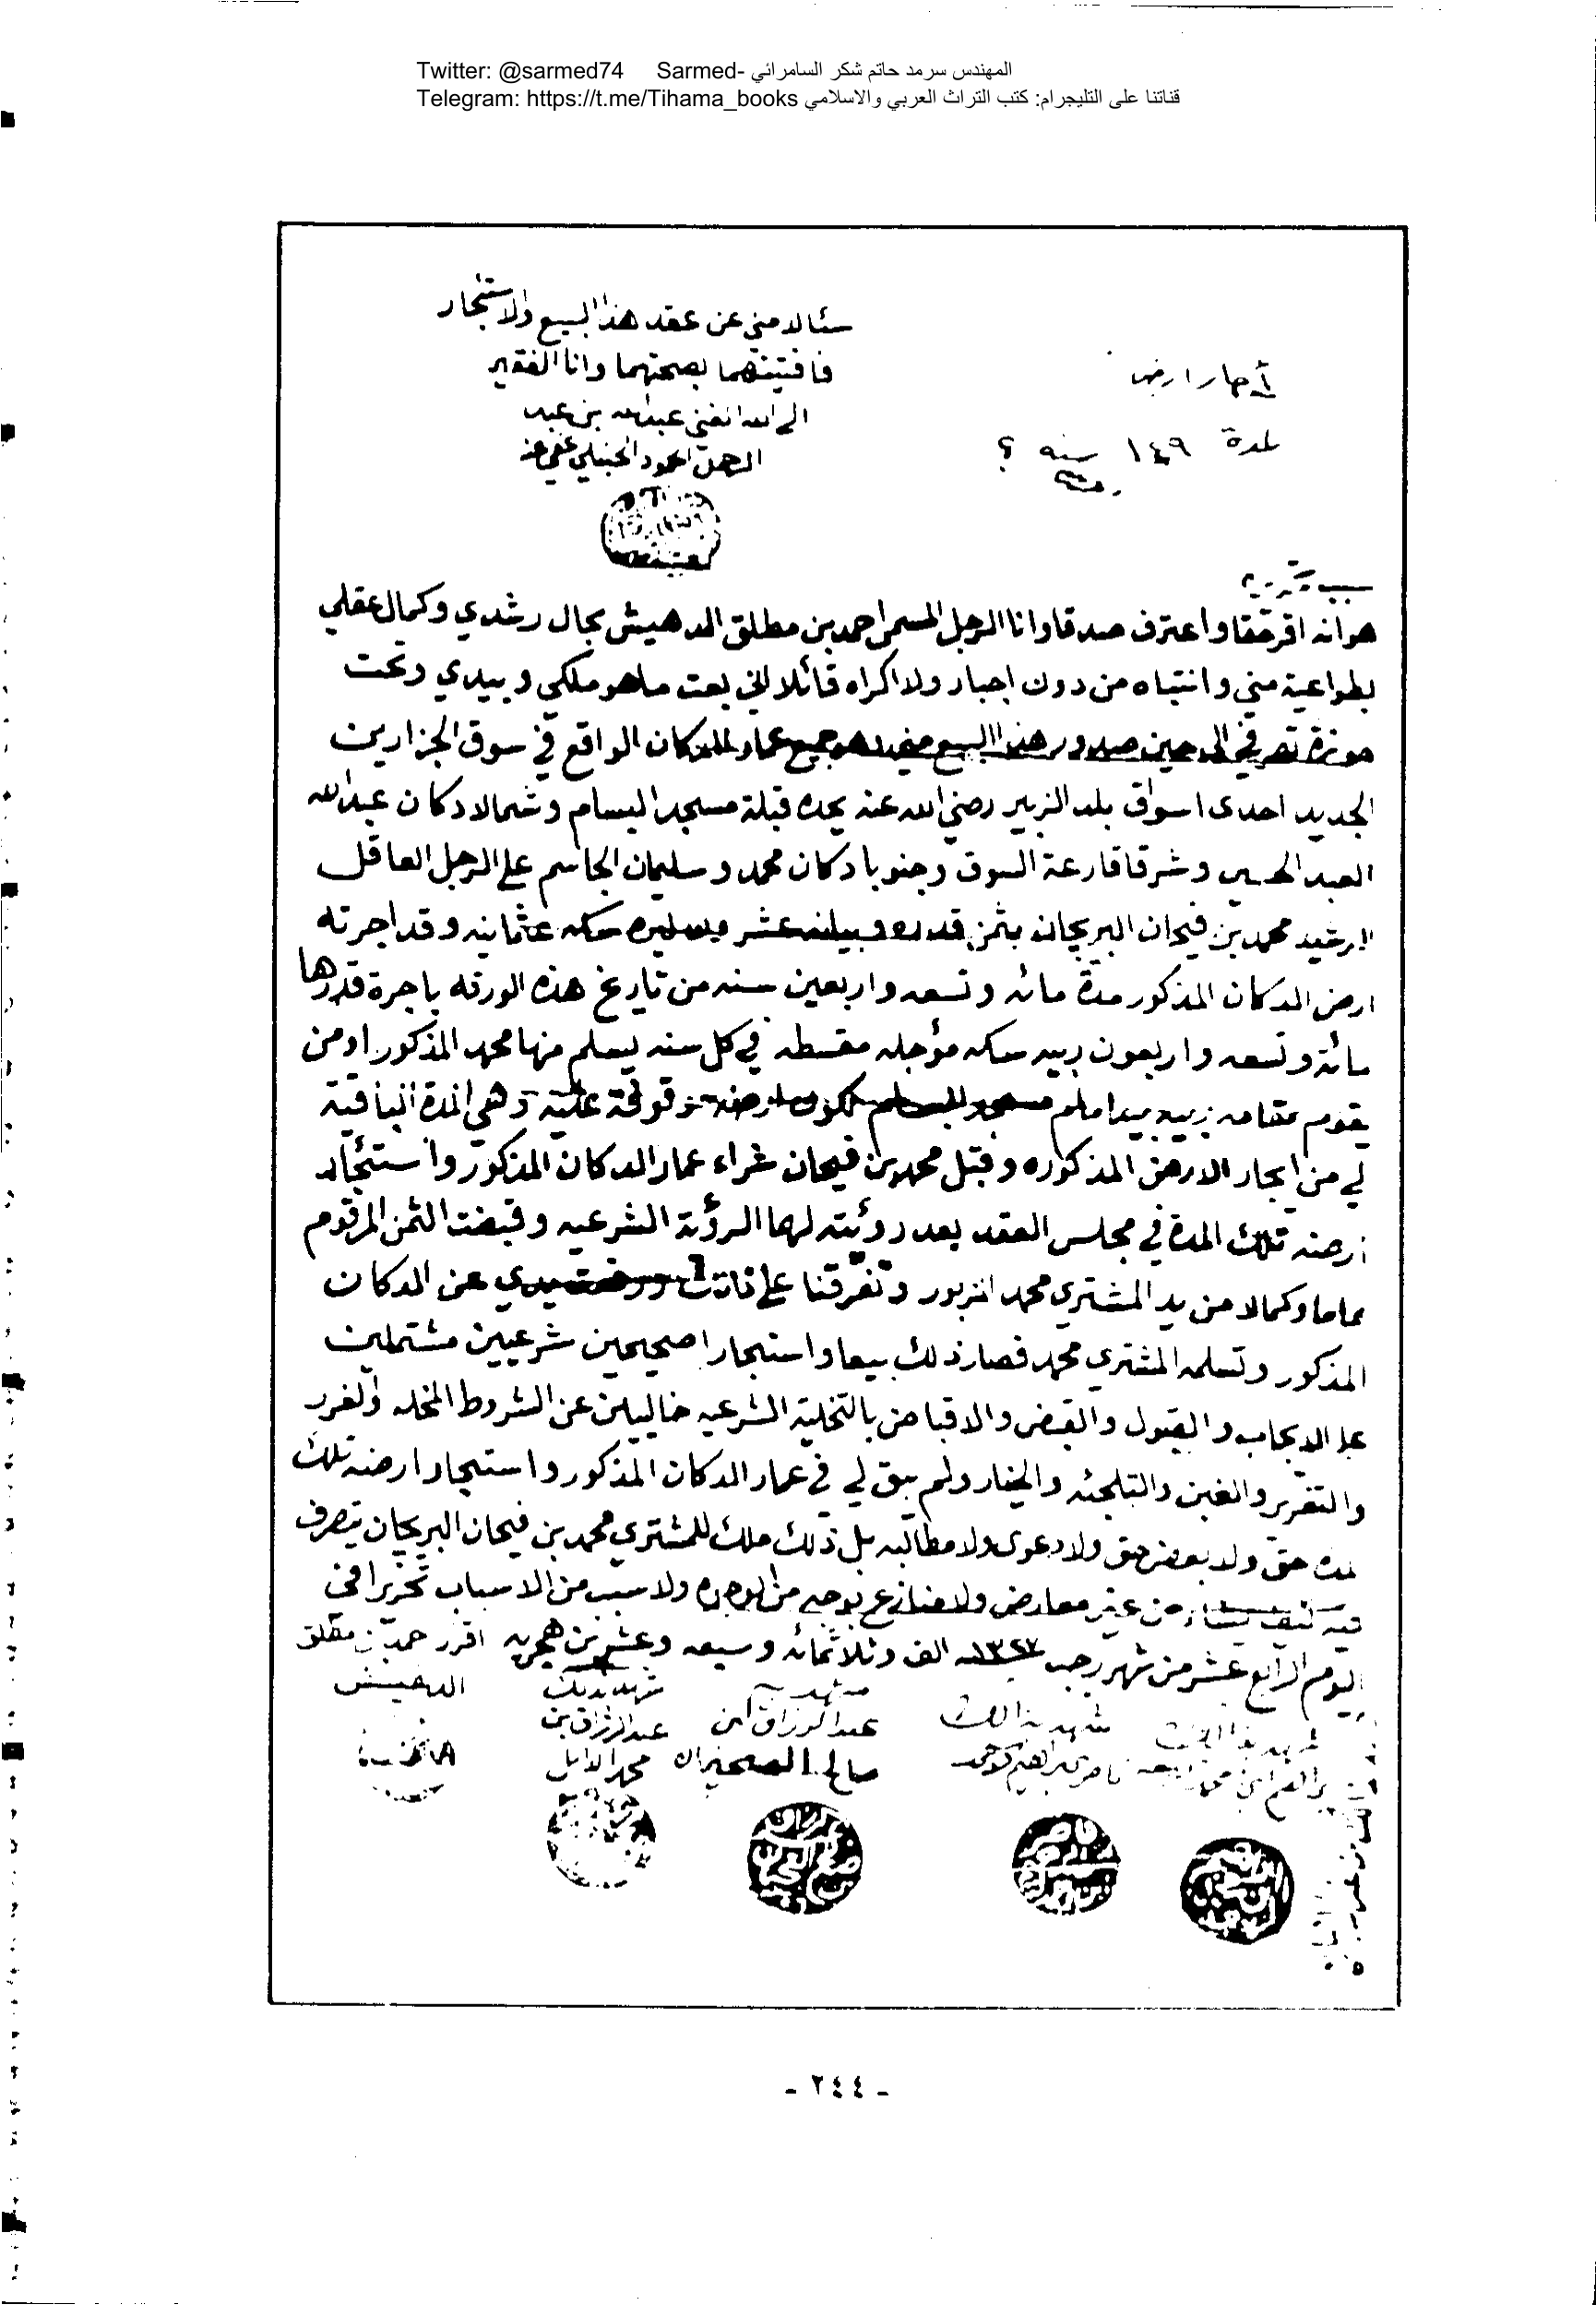 Twitter: @sarmed74 Sarmed- المهندس سرمد حاتم شكر السامرائي
Telegram: https://t.me/Tihama_books قناتنا على التليجرام: كتب التراث العربي والاسلامي
سئالا مني عن عقد هذا البيع والاستجار
فافتيتهما بصحتهما وانا الفقير
الى الله الغني عبدالله بن عبد
الرحمن الحمود الحنبلي عفي عنه
أجار ارض
لمدة ١٤٩ سنه ؟
سبب تحريره
هو انه اقر حقا واعترف صدقا وانا الرجل المسمى احمد بن مطلق الدهيش بحال رشدي وكمال عقلي
بطواعية مني وانتباه من دون اجبار ولا اكراه قائلا اني بعت ما هو ملكي وبيدي وتحت
حوزة تصرفي الى حين صدور هذا البيع مني وهو جميع عمار الدكان الواقع في سوق الجزارين
الجديد احدى اسواق بلد الزبير رضي الله عنه يحده قبلة مسجد البسام وشمالا دكان عبدالله
العبد المحسن وشرقا قارعة السوق وجنوبا دكان محمد وسليمان الجاسم على الرجل العاقل
الرشيد محمد بن فيحان البريجان بثمن قدره وبيانه عشر ليره سكه عثمانيه وقد اجرته
ارض الدكان المذكور مدة مائه وتسعه واربعين سنه من تاريخ هذه الورقه باجرة قدرها
مائة وتسعه واربعون ربيه سكه مؤجله مقسطه في كل سنه يسلم منها محمد المذكور او من
يقوم مقامه ربيه بيد امام مسجد البسام لكون ارضه موقوفة عليه وهي المدة الباقية
لي من ايجار الارض المذكوره وقبل محمد بن فيحان شراء عمار الدكان المذكور واستئجار
ارضه تلك المدة في مجلس العقد بعد روئيته لها الرؤية الشرعيه وقبضت الثمن المرقوم
تماما وكمالا من يد المشتري محمد المزبور وتفرقنا على ذلك ورفعت يدي عن الدكان
المذكور وتسلمه المشتري محمد فصار ذلك بيعا واستجارا صحيحين شرعيين مشتملين
على الايجاب والقبول والقبض والاقباض بالتخلية الشرعيه خاليين عن الشروط المخله والغرر
والتغرير والغبن والتلجئه والخيار ولم يبق لي في عمار الدكان المذكور واستيجار ارضه تلك
المدة حق ولا بعض حق ولا دعوى ولا مطالبه بل ذلك ملك للمشتري محمد بن فيحان البريجان يتصرف
فيه كيف يشاء من غير معارض ولا منازع بوجه من الوجوه ولا سبب من الاسباب تحريرا في
اليوم الرابع عشر من شهر رجب ١٣٢٧ سنه الف وثلاثمائه وسبعه وعشرين هجريه
اقرر حمد بن مطلق
الدهيش
شهد بذلك
عبدالرزاق بن
محمد الدايل
شهد بـ
عبدالرزاق ابن
صالح الصخيران
شهد بذالك
ناصر بن ابراهيم
شهد بذالك
براهيم ابن محمد
- ٢٤٤ -